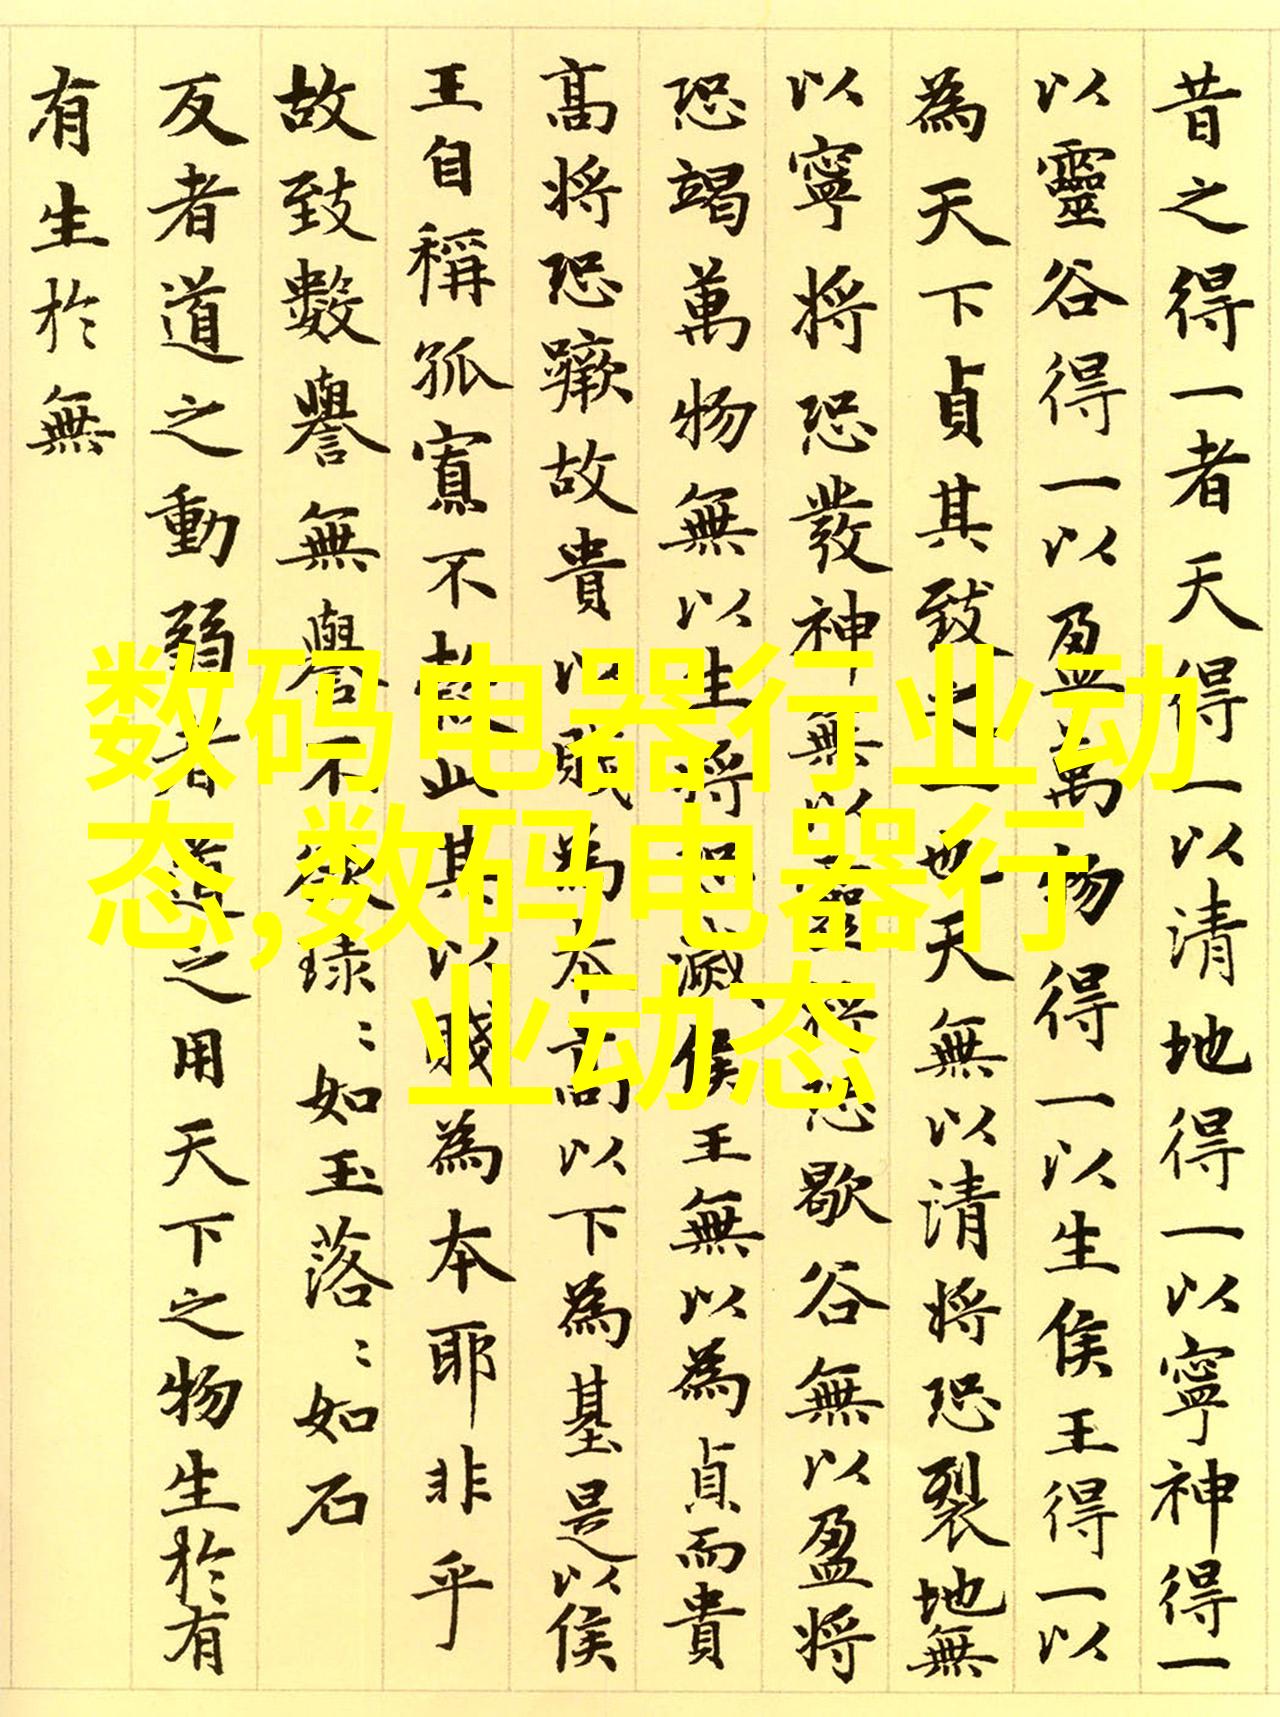 昔之得一者天得一以清地得一以寧神得一
以靈谷得一以盈萬物得一以生侯王得一以
為天下貞其致之一也天無以清将恐裂地無
以寧将恐發神無以靈将恐歇谷無以盈将
恐竭萬物無以生将恐滅侯王無以為貞而貴
髙将恐蹶故貴以賤為本高以下為基是以侯
王自稱孤寡不穀此其以賤為本耶非乎
故致數譽無譽不欲琭〻如玉落〻如石
反者道之動弱者道之用天下之物生於有
有生於無
数码电器行业动
态,数码电器行
业动态